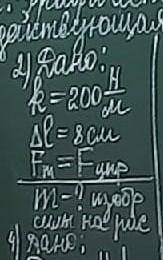 действующая
2) Дано:
k = 200 Н/м
Δl = 8 см
Fт = Fупр
m - ? изобр
силы на рис
4) Дано: